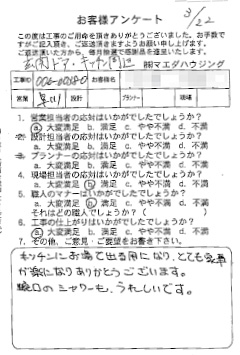 お客様アンケート
3/22
この度は工事のご用命を頂きありがとうございました。お手数で
すがご記入頂き、ご返送頂きますようお願い申し上げます。
ご返送頂いた方から、毎月抽選で感謝品を進呈いたします。
㈱マエダハウジング
工事ID
お客様名
営業
設計
プランナー
現場
1. 営業担当者の応対はいかがでしたでしょうか?
a 大変満足 b. 満足 c. やや不満 d. 不満
2. 設計担当者の応対はいかがでしたでしょうか?
a. 大変満足 b. 満足 c. やや不満 d. 不満
3. プランナーの応対はいかがでしたでしょうか?
a. 大変満足 b. 満足 c. やや不満 d. 不満
4. 現場担当者の応対はいかがでしたでしょうか?
a. 大変満足 b 満足 c. やや不満 d. 不満
5. 職人のマナーはいかがでしたでしょうか?
a. 大変満足 b 満足 c. やや不満 d. 不満
それはどの職人でしょうか?( )
6. 工事の仕上がりはいかがでしたでしょうか?
a 大変満足 b. 満足 c. やや不満 d. 不満
7. その他、ご意見・ご要望をお書き下さい。
キッチンにお湯が出る用になり、とても家事
が楽になりありがとうございます。
蛇口のシャワーも、うれしいです。